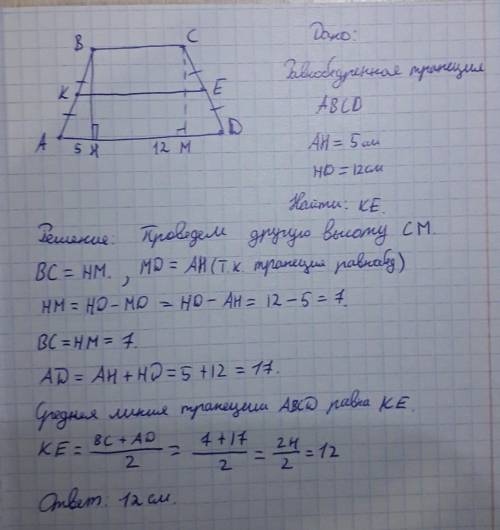 B C
K E
A 5 H 12 M D
Дано:
Равнобедренная трапеция
ABCD
AH = 5 см
HD = 12 см
Найти: KE.
Решение: Проведем другую высоту CM.
BC = HM. , MD = AH (т.к. трапеция равнобед)
HM = HD - MD = HD - AH = 12 - 5 = 7.
BC = HM = 7.
AD = AH + HD = 5 + 12 = 17.
Средняя линия трапеции ABCD равна KE.
KE = (BC + AD)/2 = (7 + 17)/2 = 24/2 = 12
Ответ. 12 см.